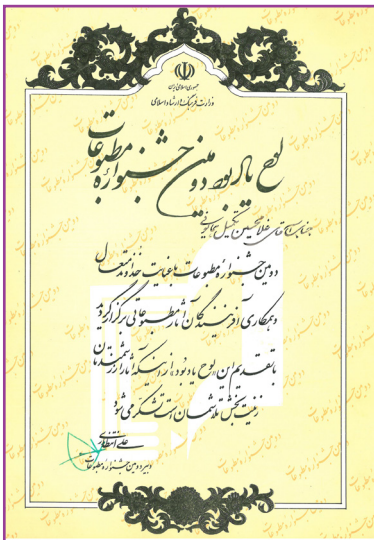 جمهوری اسلامی ایران
وزارت فرهنگ و ارشاد اسلامی
لوح یادبود دومین جشنواره مطبوعات
جناب آقای غلامحسین تکمیل همایونی
دومین جشنواره مطبوعات با عنایت خداوند متعال
و همکاری آفرینندگان آثار مطبوعاتی برگزار گردید
با تقدیم این «لوح یادبود» از اینکه آثار ارزشمندتان
زینت بخش تلاشمان است تشکر می شود
علی انتظاری
دبیر دومین جشنواره مطبوعات